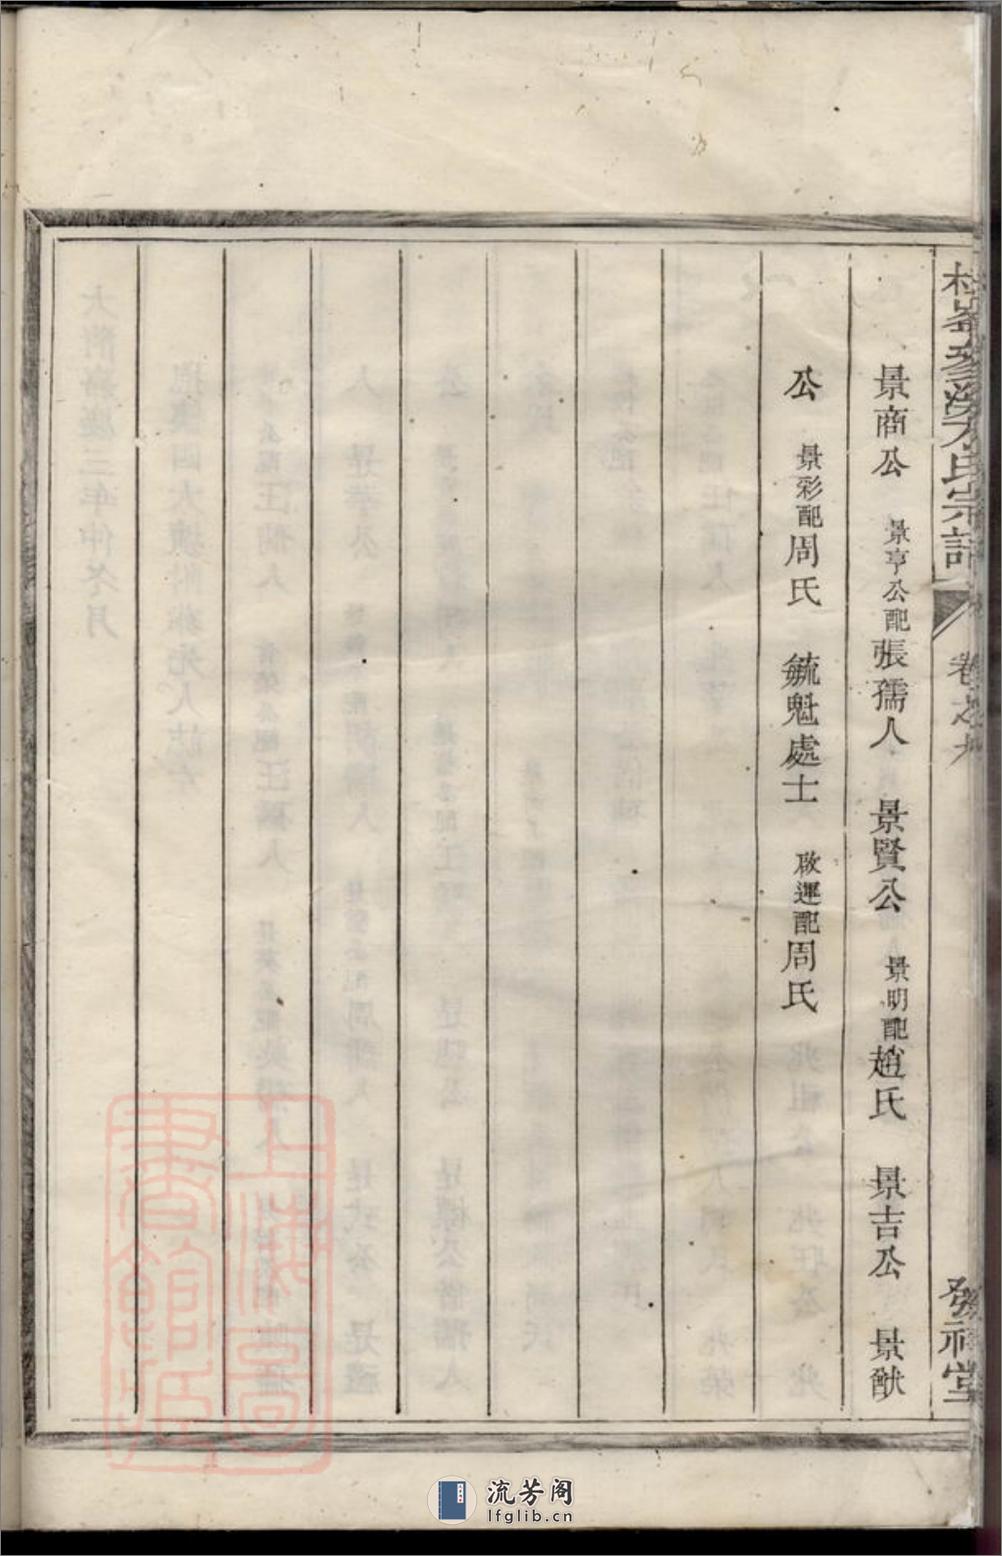 景商公 景亨公配張孺人 景賢公 景明配趙氏 景吉公 景猷
公 景彩配周氏 毓魁處士 啟運配周氏
氏宗譜
卷之九
發祥堂
上海圖書館藏
流芳阁
lfglib.cn